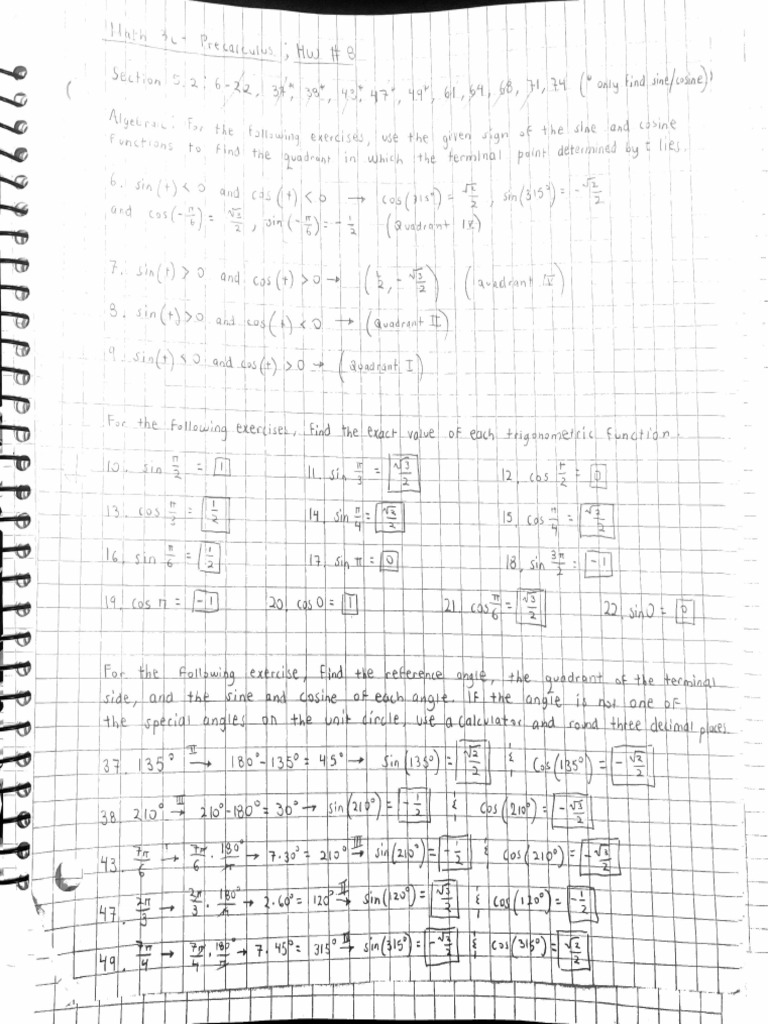 Math 3C - Precalculus ; HW # 8
Section 5.2: 6-22, 37*, 38*, 43*, 47*, 49*, 61, 64, 68, 71, 74 (* only find sine/cosine)
Algebraic: For the following exercises, use the given sign of the sine and cosine
functions to find the quadrant in which the terminal point determined by t lies.
6. sin(t) < 0 and cos(t) < 0 → cos(315°) = √2/2, sin(315°) = -√2/2
and cos(-π/6) = √3/2, sin(-π/6) = -1/2 (Quadrant IV)
7. sin(t) > 0 and cos(t) > 0 → (1/2, -√3/2) (quadrant IV)
8. sin(t) > 0 and cos(t) < 0 → (Quadrant II)
9. sin(t) < 0 and cos(t) > 0 → (Quadrant I)
For the following exercises, find the exact value of each trigonometric function.
10. sin π/2 = 1 11. sin π/3 = √3/2 12. cos π/2 = 0
13. cos π/3 = 1/2 14. sin π/4 = √2/2 15. cos π/4 = √2/2
16. sin π/6 = 1/2 17. sin π = 0 18. sin 3π/2 = -1
19. cos π = -1 20. cos 0 = 1 21. cos π/6 = √3/2 22. sin 0 = 0
For the following exercise, find the reference angle, the quadrant of the terminal
side, and the sine and cosine of each angle. If the angle is not one of
the special angles on the unit circle, use a calculator and round three decimal places.
37. 135° II→ 180°-135° = 45° → sin(135°) = √2/2 & cos(135°) = -√2/2
38. 210° III→ 210°-180° = 30° → sin(210°) = -1/2 & cos(210°) = -√3/2
43. 7π/6 → 7π/6 · 180°/π → 7·30° = 210° III→ sin(210°) = -1/2 & cos(210°) = -√3/2
47. 2π/3 → 2π/3 · 180°/π → 2·60° = 120° II→ sin(120°) = √3/2 & cos(120°) = -1/2
49. 7π/4 → 7π/4 · 180°/π → 7·45° = 315° → sin(315°) = -√2/2 & cos(315°) = √2/2